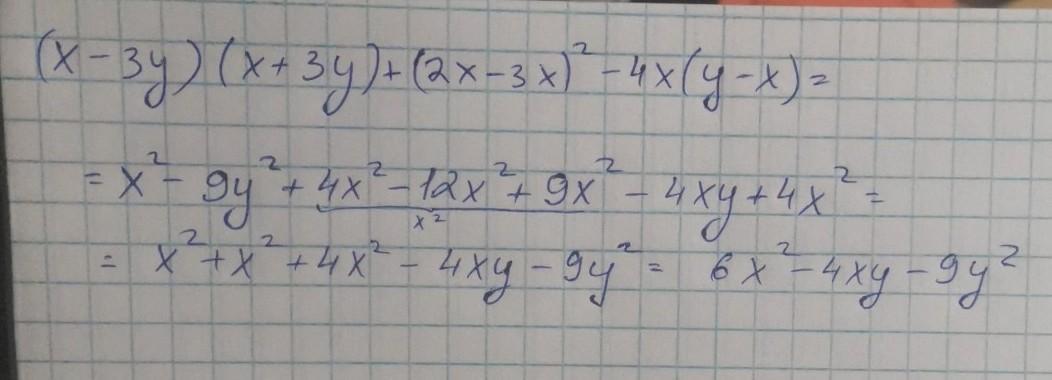 (x-3y)(x+3y)+(2x-3x)²-4x(y-x)=
=x²-9y²+4x²-12x²+9x²-4xy+4x²=
x²
= x²+x²+4x²-4xy-9y²= 6x²-4xy-9y²